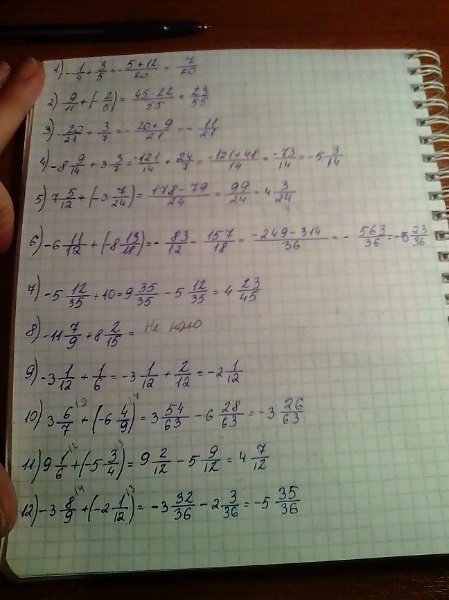 1) -1/4 + 3/5 = -5+12/20 = 7/20
2) 9/11 + (-2/5) = 45-22/55 = 23/55
3) -20/21 + 3/7 = -20+9/21 = -11/21
4) -8 9/14 + 3 3/7 = -121/14 + 24/7 = -121+48/14 = -73/14 = -5 3/14
5) 7 5/12 + (-3 7/24) = 178-79/24 = 99/24 = 4 3/24
6) -6 11/12 + (-8 13/18) = -83/12 - 157/18 = -249-314/36 = -563/36 = 23/36
7) -5 12/35 + 10 = 9 35/35 - 5 12/35 = 4 23/45
8) -11 7/9 + 8 2/15 =
9) -3 1/12 + 1/6 = -3 1/12 + 2/12 = -2 1/12
10) 3 6/7 + (-6 4/9) = 3 54/63 - 6 28/63 = -3 26/63
11) 9 1/6 + (-5 3/4) = 9 2/12 - 5 9/12 = 4 7/12
12) -3 8/9 + (-2 1/12) = -3 32/36 - 2 3/36 = -5 35/36